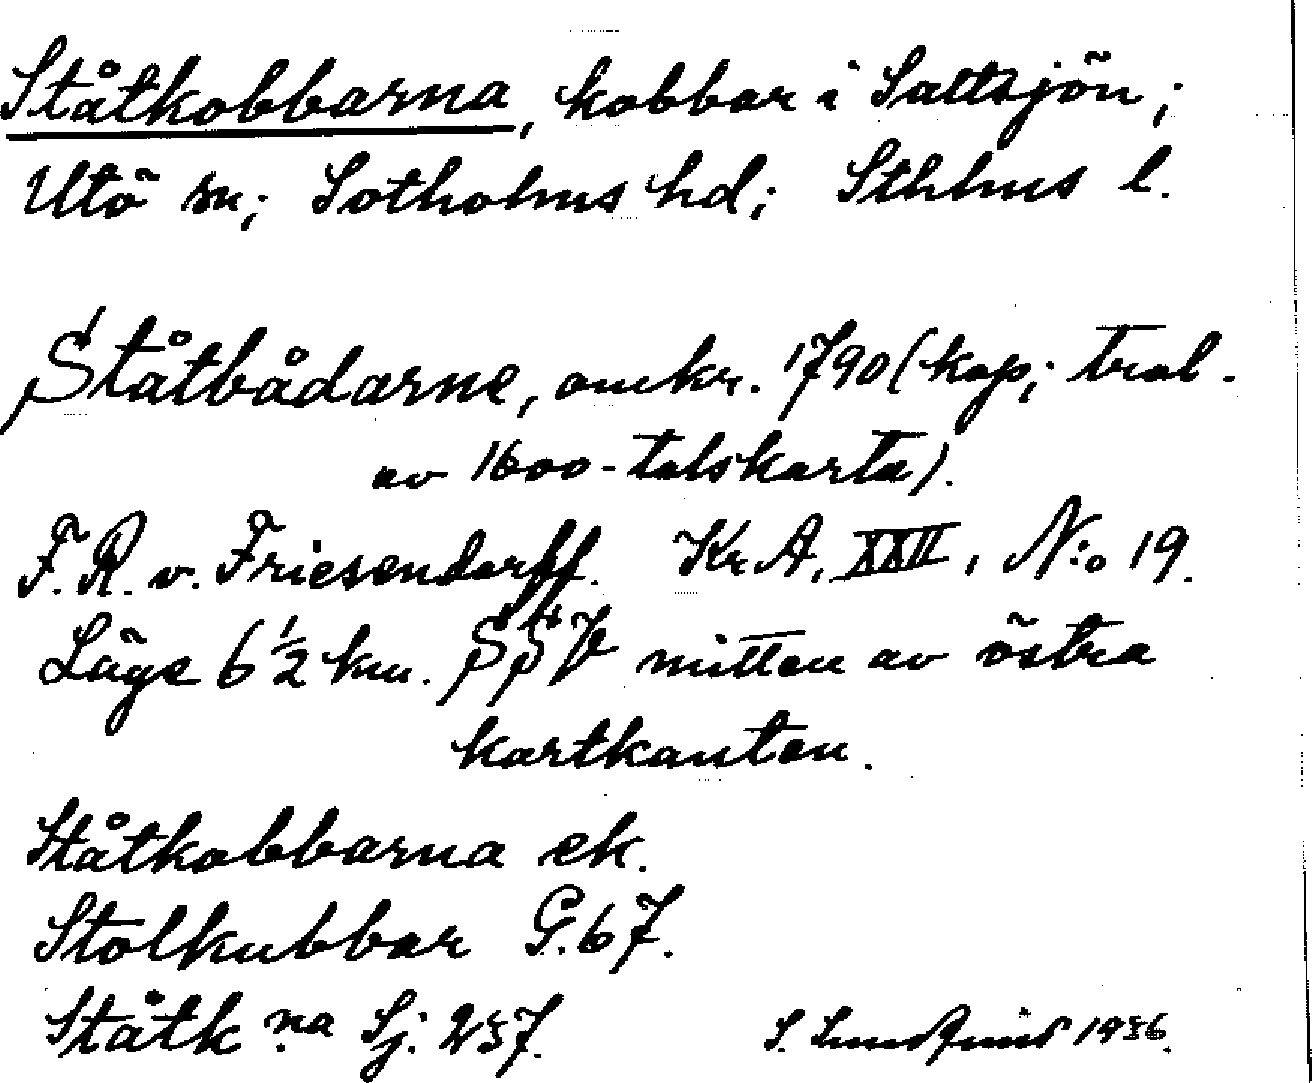 Ståtkobbarna, kobbar i Saltsjön;
Utö sn; Sotholms hd; Sthlms l.
Ståtbådarne, omkr. 1790 (kop; trol.
av 1600-talskarta).
F. R. v. Friesendorff. Kr A, XXII, N:o 19.
Läge 6 1/2 km. SSV mitten av östra
kartkanten.
Ståtkobbarna ek.
Stolkubbar G. 67.
Ståtk:na Sj. 237.
S. 1936.